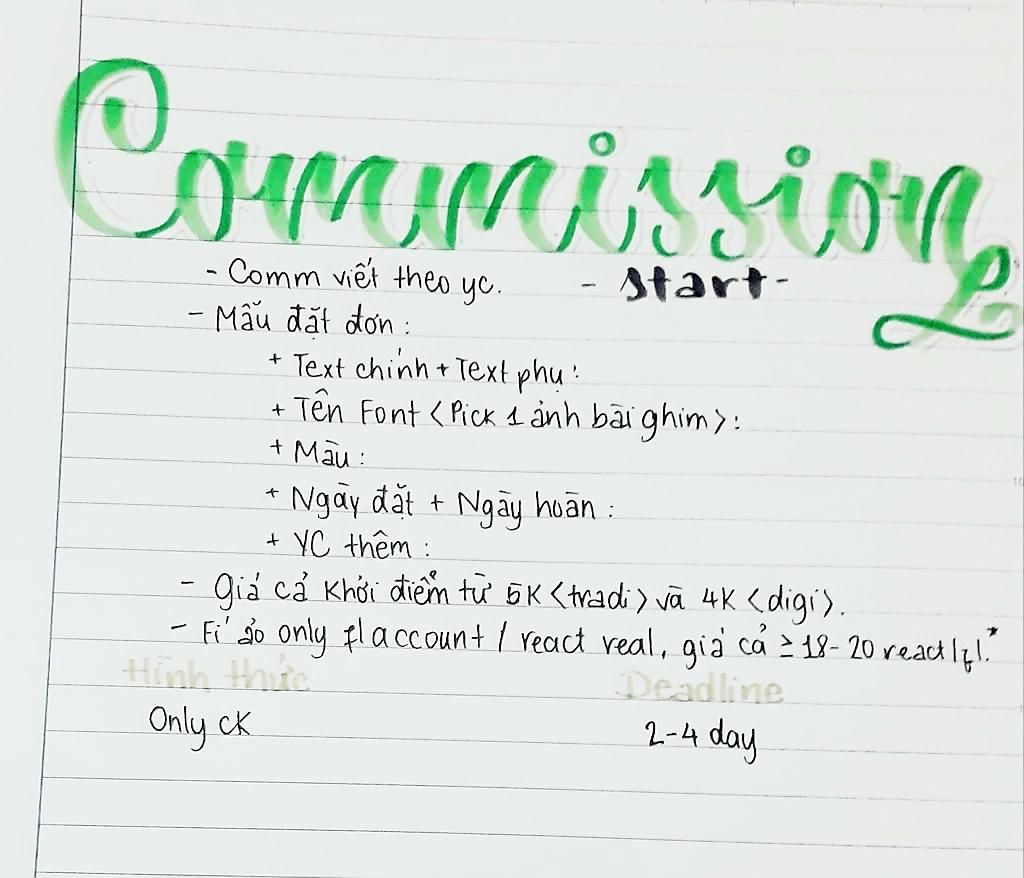 Commission
- Comm viết theo yc. - start -
- Mẫu đặt đơn :
+ Text chính + Text phụ :
+ Tên Font <Pick 1 ảnh bài ghim> :
+ Màu :
+ Ngày đặt + Ngày hoàn :
+ YC thêm :
- Giá cả khởi điểm từ 5K <tradi> và 4K <digi>.
- Fí ảo only fl account / react real, giá cả ≥ 18-20 react/fl.*
Hình thức Deadline
Only ck 2-4 day